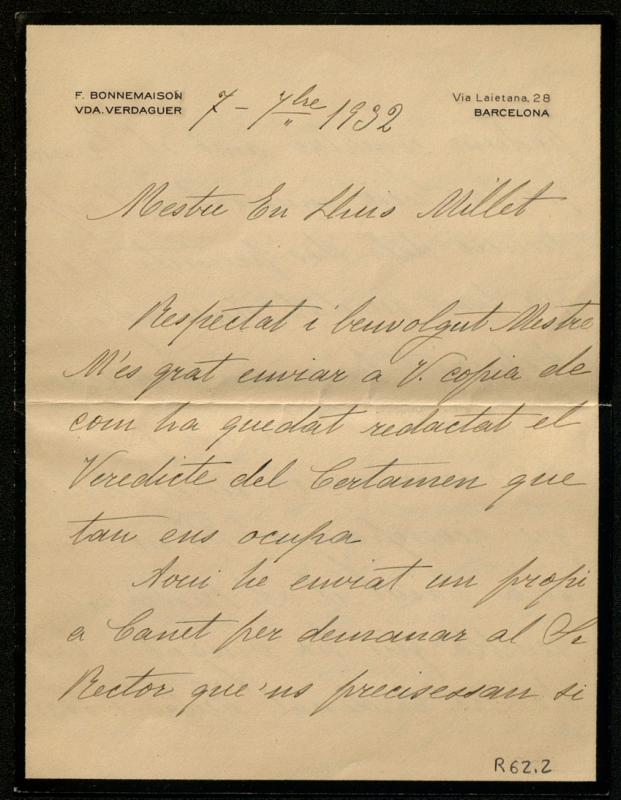 F. BONNEMAISON
VDA. VERDAGUER
7 - 7bre 1932
Via Laietana, 28
BARCELONA
Mestre En Lluis Millet
Respectat i benvolgut Mestre
M'es grat enviar a V. copia de
com ha quedat redactat el
Veredicte del Certamen que
tan ens ocupa
Avui he enviat un propi
a Canet per demanar al Sr
Rector que'ns precisessan si
R62.2